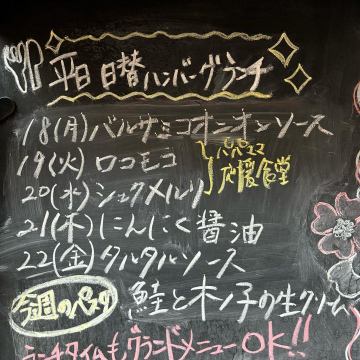 平日日替ハンバーグランチ
18(月)バルサミコオニオンソース
19(火)ロコモコ
パパママ
応援食堂
20(水)シュクメルリ
21(木)にんにく醤油
22(金)タルタルソース
今週のパスタ 鮭と木ノ子の生クリーム
ランチタイムもグランドメニューOK!!